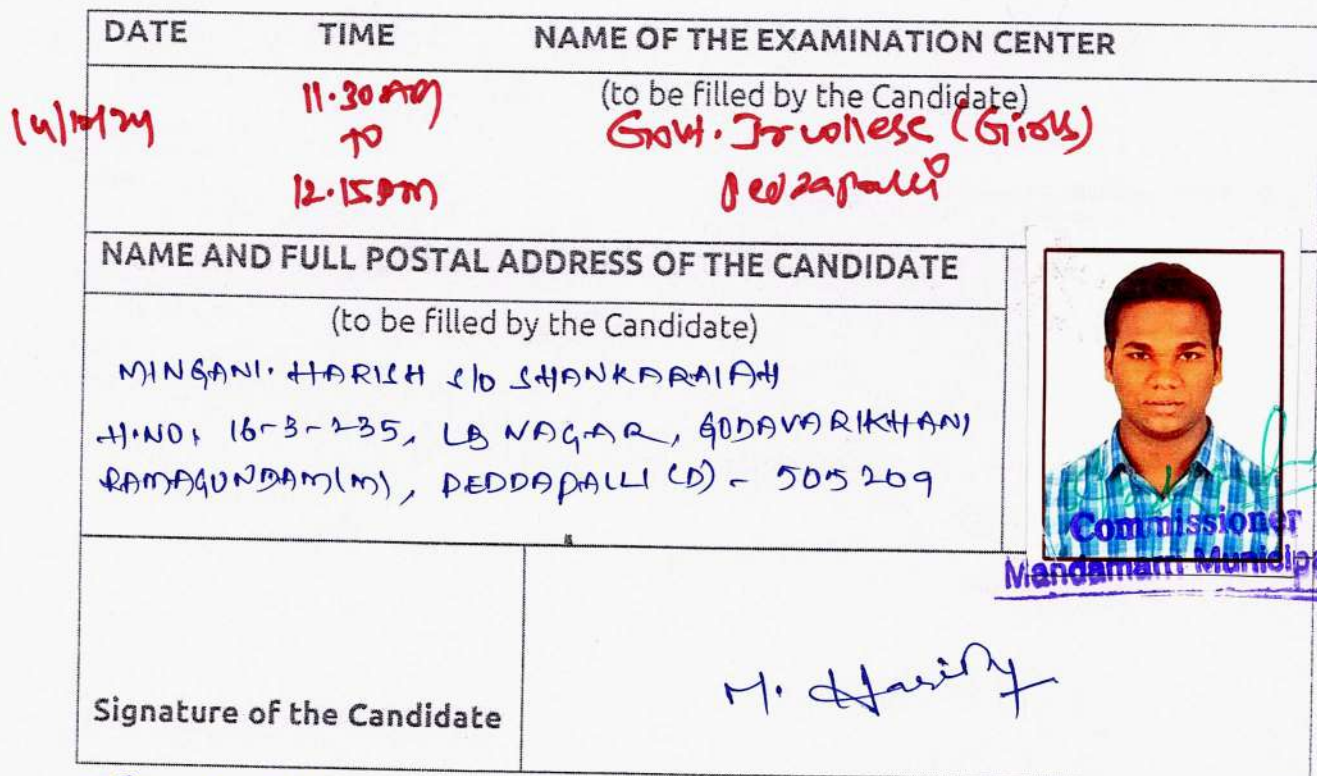 DATE TIME NAME OF THE EXAMINATION CENTER
(to be filled by the Candidate)
11.30AM
TO
12.15PM
Govt. Jr College (Girls)
Peddapalli
NAME AND FULL POSTAL ADDRESS OF THE CANDIDATE
(to be filled by the Candidate)
MINGANI. HARISH S/O SHANKARAIAH
H.NO: 16-3-235, LB NAGAR, GODAVARIKHANI
RAMAGUNDAM(M), PEDDAPALLI (D) - 505209
Commissioner
Mandamarri Municipa
Signature of the Candidate
M. Harish